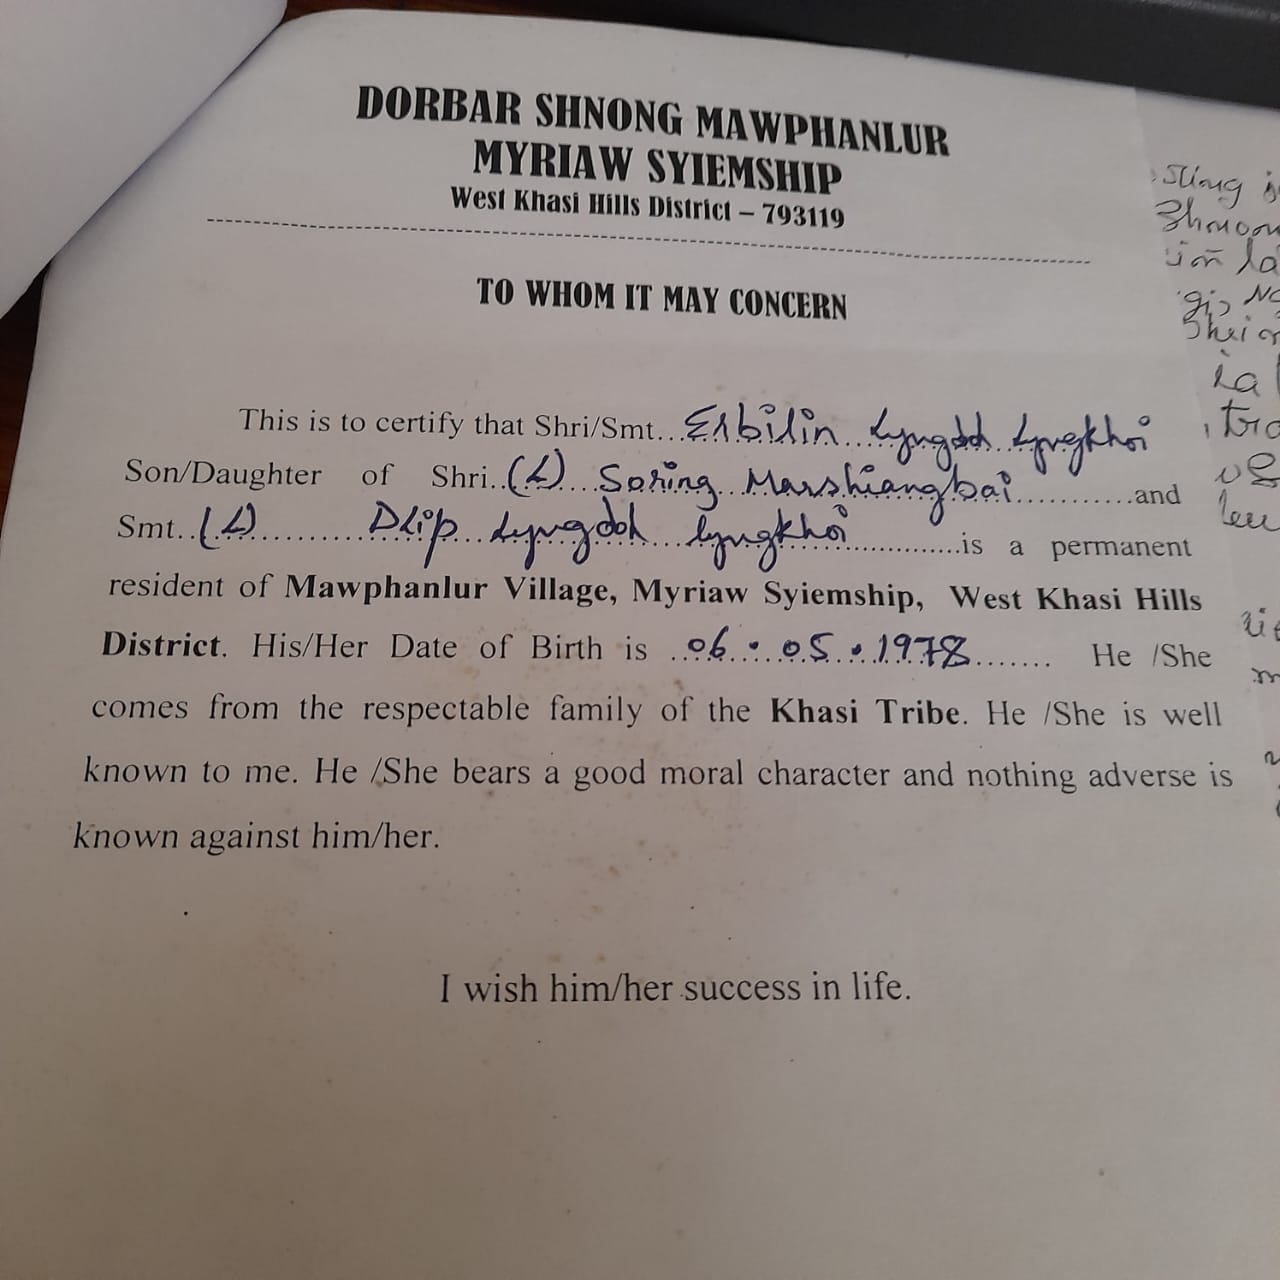 DORBAR SHNONG MAWPHANLUR
MYRIAW SYIEMSHIP
West Khasi Hills District – 793119
TO WHOM IT MAY CONCERN
This is to certify that Shri/Smt... Erbilin Lyngdoh Lyngkhoi
Son/Daughter of Shri..(L) Soring Marshiangbai............and
Smt..(L)........... Dlip Lyngdoh Lyngkhoi ..............is a permanent
resident of Mawphanlur Village, Myriaw Syiemship, West Khasi Hills
District. His/Her Date of Birth is ..06.05.1978....... He /She
comes from the respectable family of the Khasi Tribe. He /She is well
known to me. He /She bears a good moral character and nothing adverse is
known against him/her.
I wish him/her success in life.